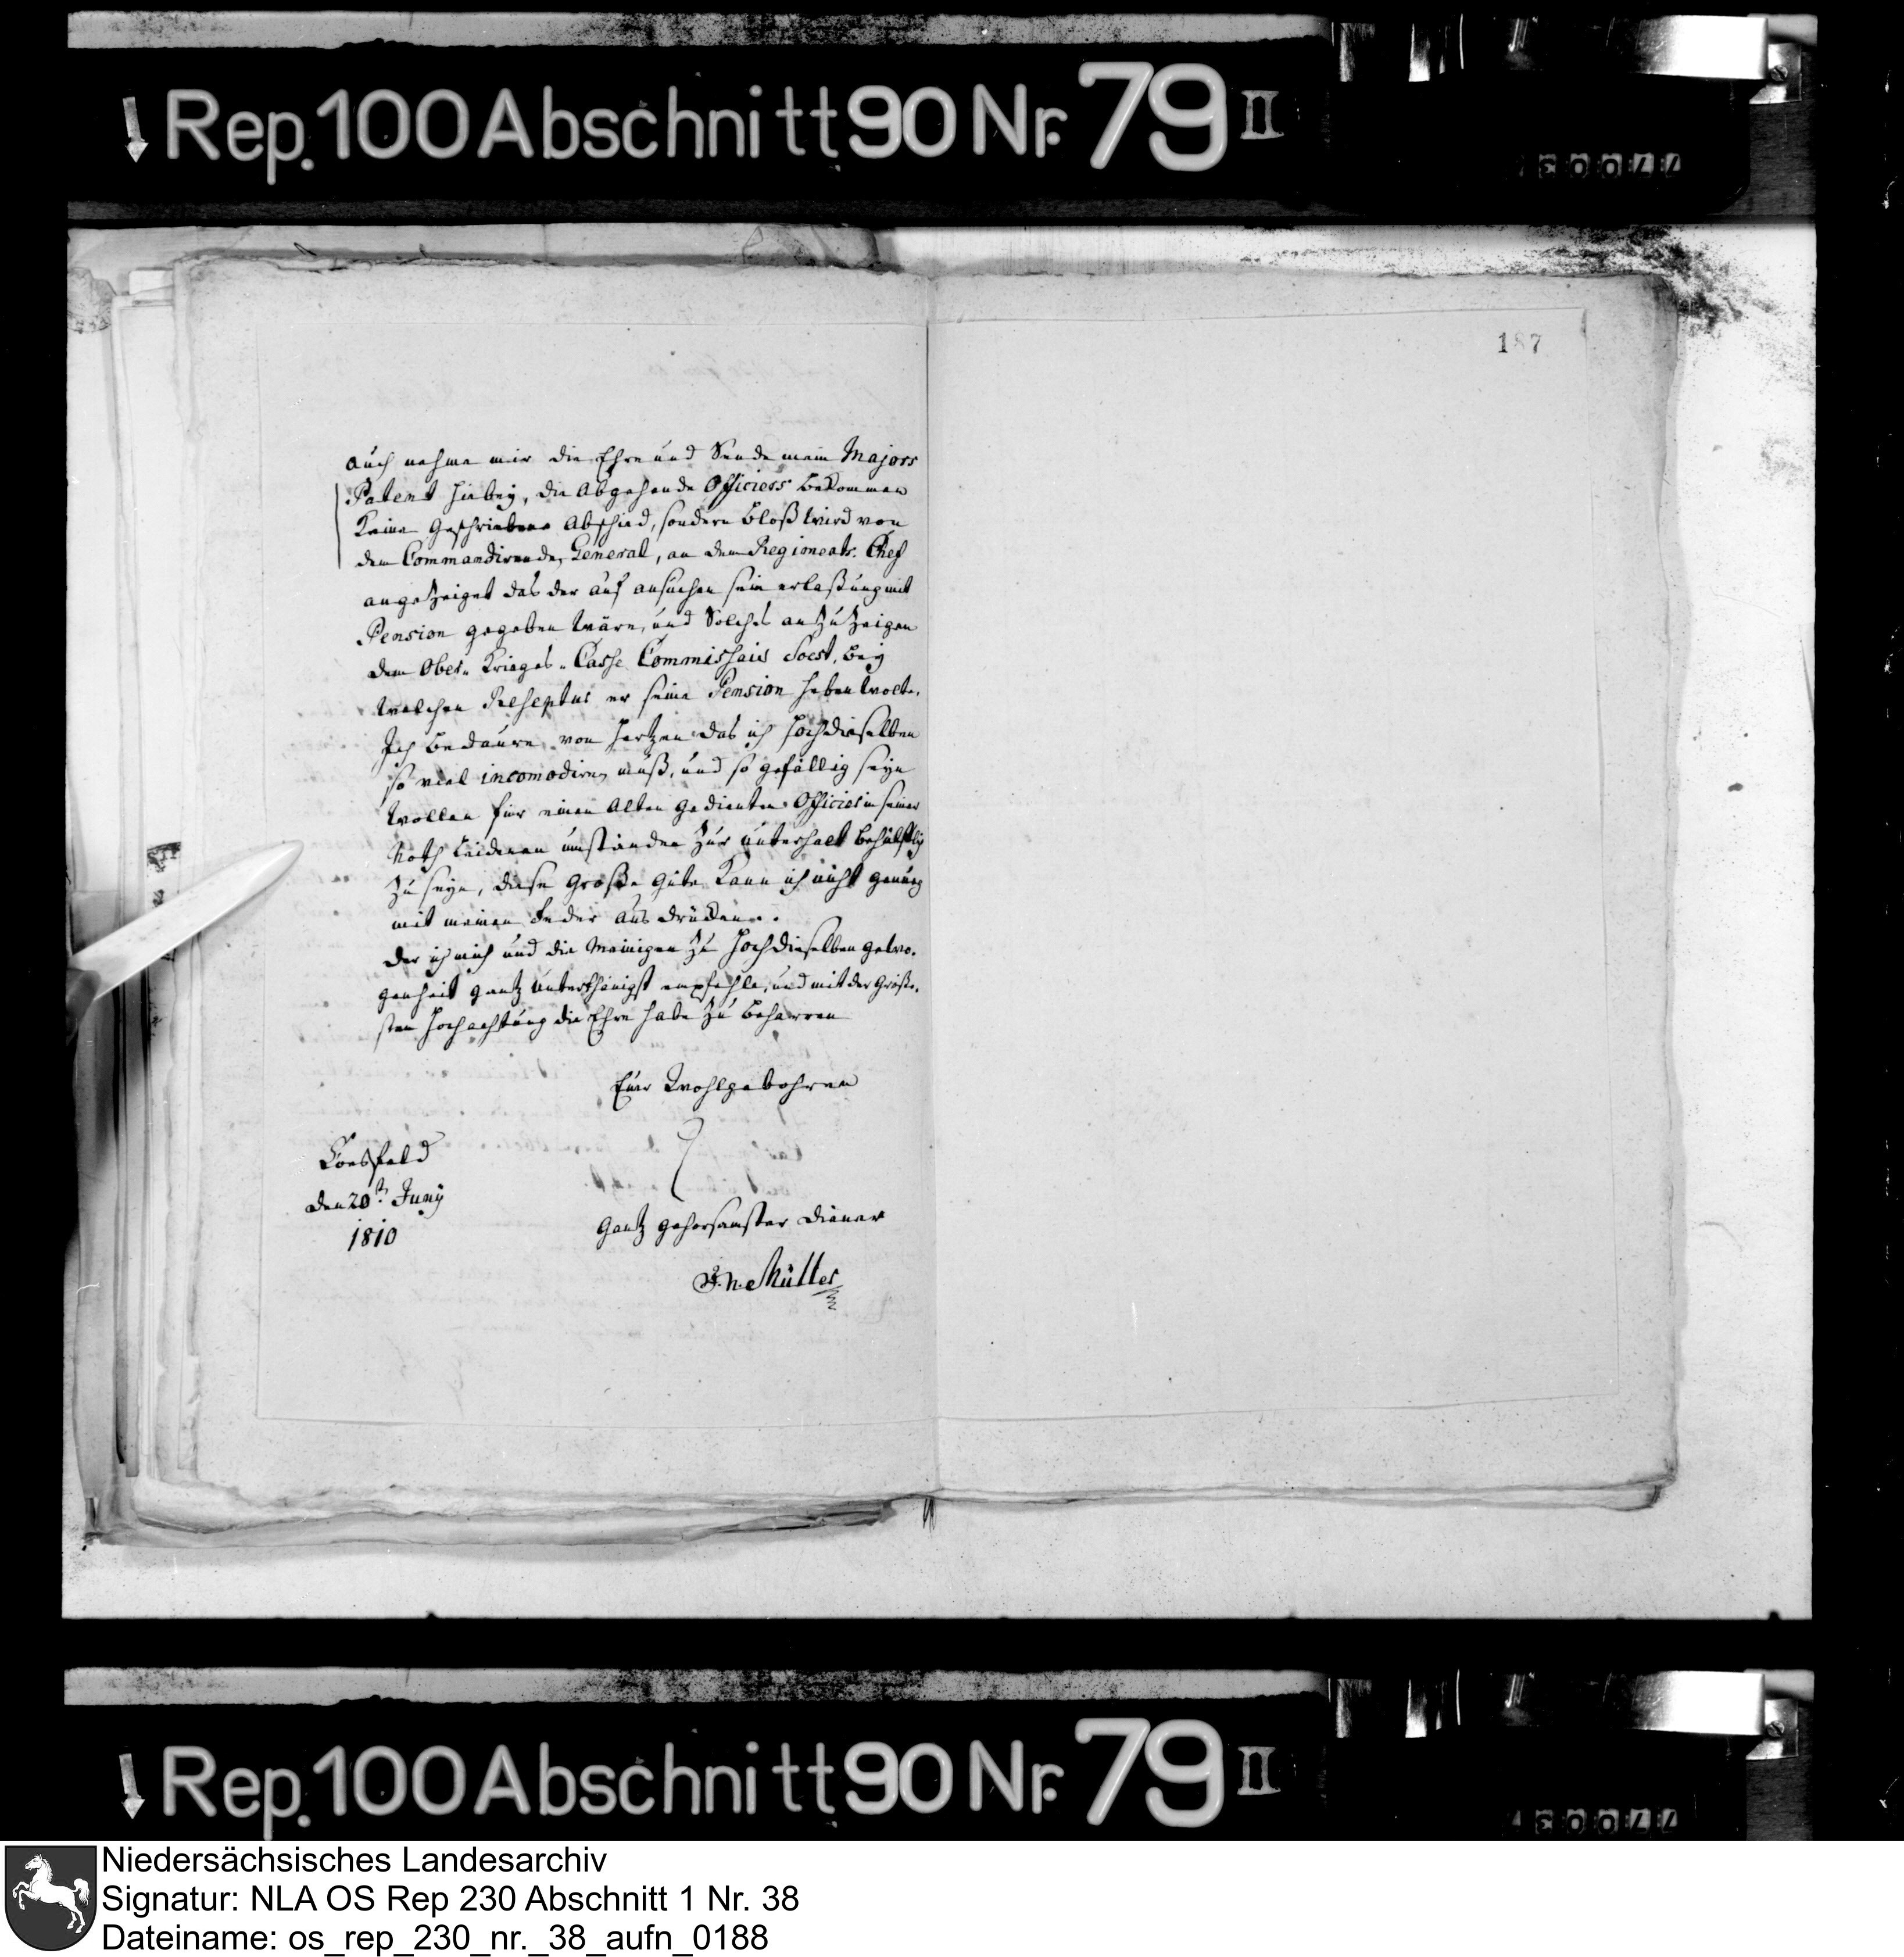 Rep. 100 Abschnitt 90 Nr. 79 II
77003
187
auch nehme mir die Ehre und Sende mein Majors
Patent hiebey, die Abgehende Officiers bekommen
Keine Geschriebene Abschied, sondern bloß wird von
dem Commandirende General, an dem Regiments Chef
angezeiget das der auf ansuchen sein erlaßung mit
Pension gegeben wäre, und Solches an zu zeigen
dem Ober Krieges Casse Commissair Soest, bey
welchen er seine Pension heben wolte.
Ich bedaure von Hertzen das ich Hochdieselben
so viel incomodiren muß, und so gefällig seyn
wollen für einen Alten gedienten Officier in seiner
Noth Leidenen umständen zur unterhalt behülflig
zu seyn, diese Große Güte Kann ich nicht genung
mit meinen Feder aus drücken.
der ich mich und die Meinigen zu Hochdieselben gewo-
genheit gantz unterthänigst empfehle, und mit der Größe-
sten Hochachtung die Ehre habe zu beharren
Euer Wohlgebohren
Coesfeld
den 20t Juny
1810
Gantz gehorsamster Diener
Müller
Rep. 100 Abschnitt 90 Nr. 79 II
77003
Niedersächsisches Landesarchiv
Signatur: NLA OS Rep 230 Abschnitt 1 Nr. 38
Dateiname: os_rep_230_nr._38_aufn_0188